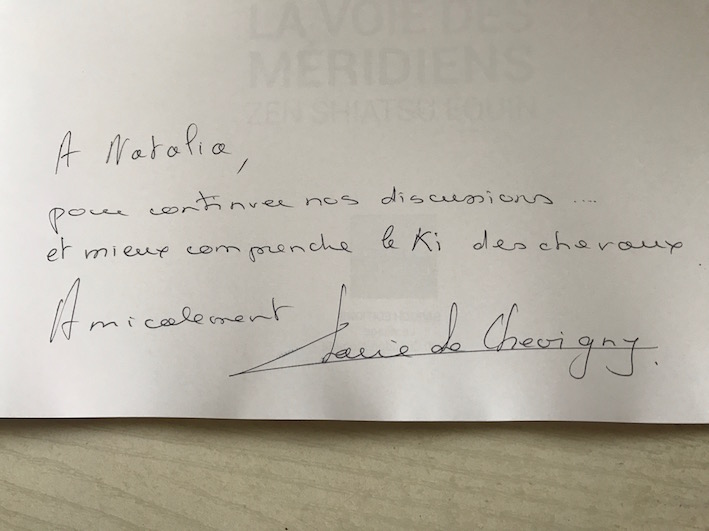 LA VOIE DES
MÉRIDIENS
ZEN SHIATSU EQUIN
A Natalia,
pour continuer nos discussions ....
et mieux comprendre le Ki des chevaux
Amicalement
de Chevigny.